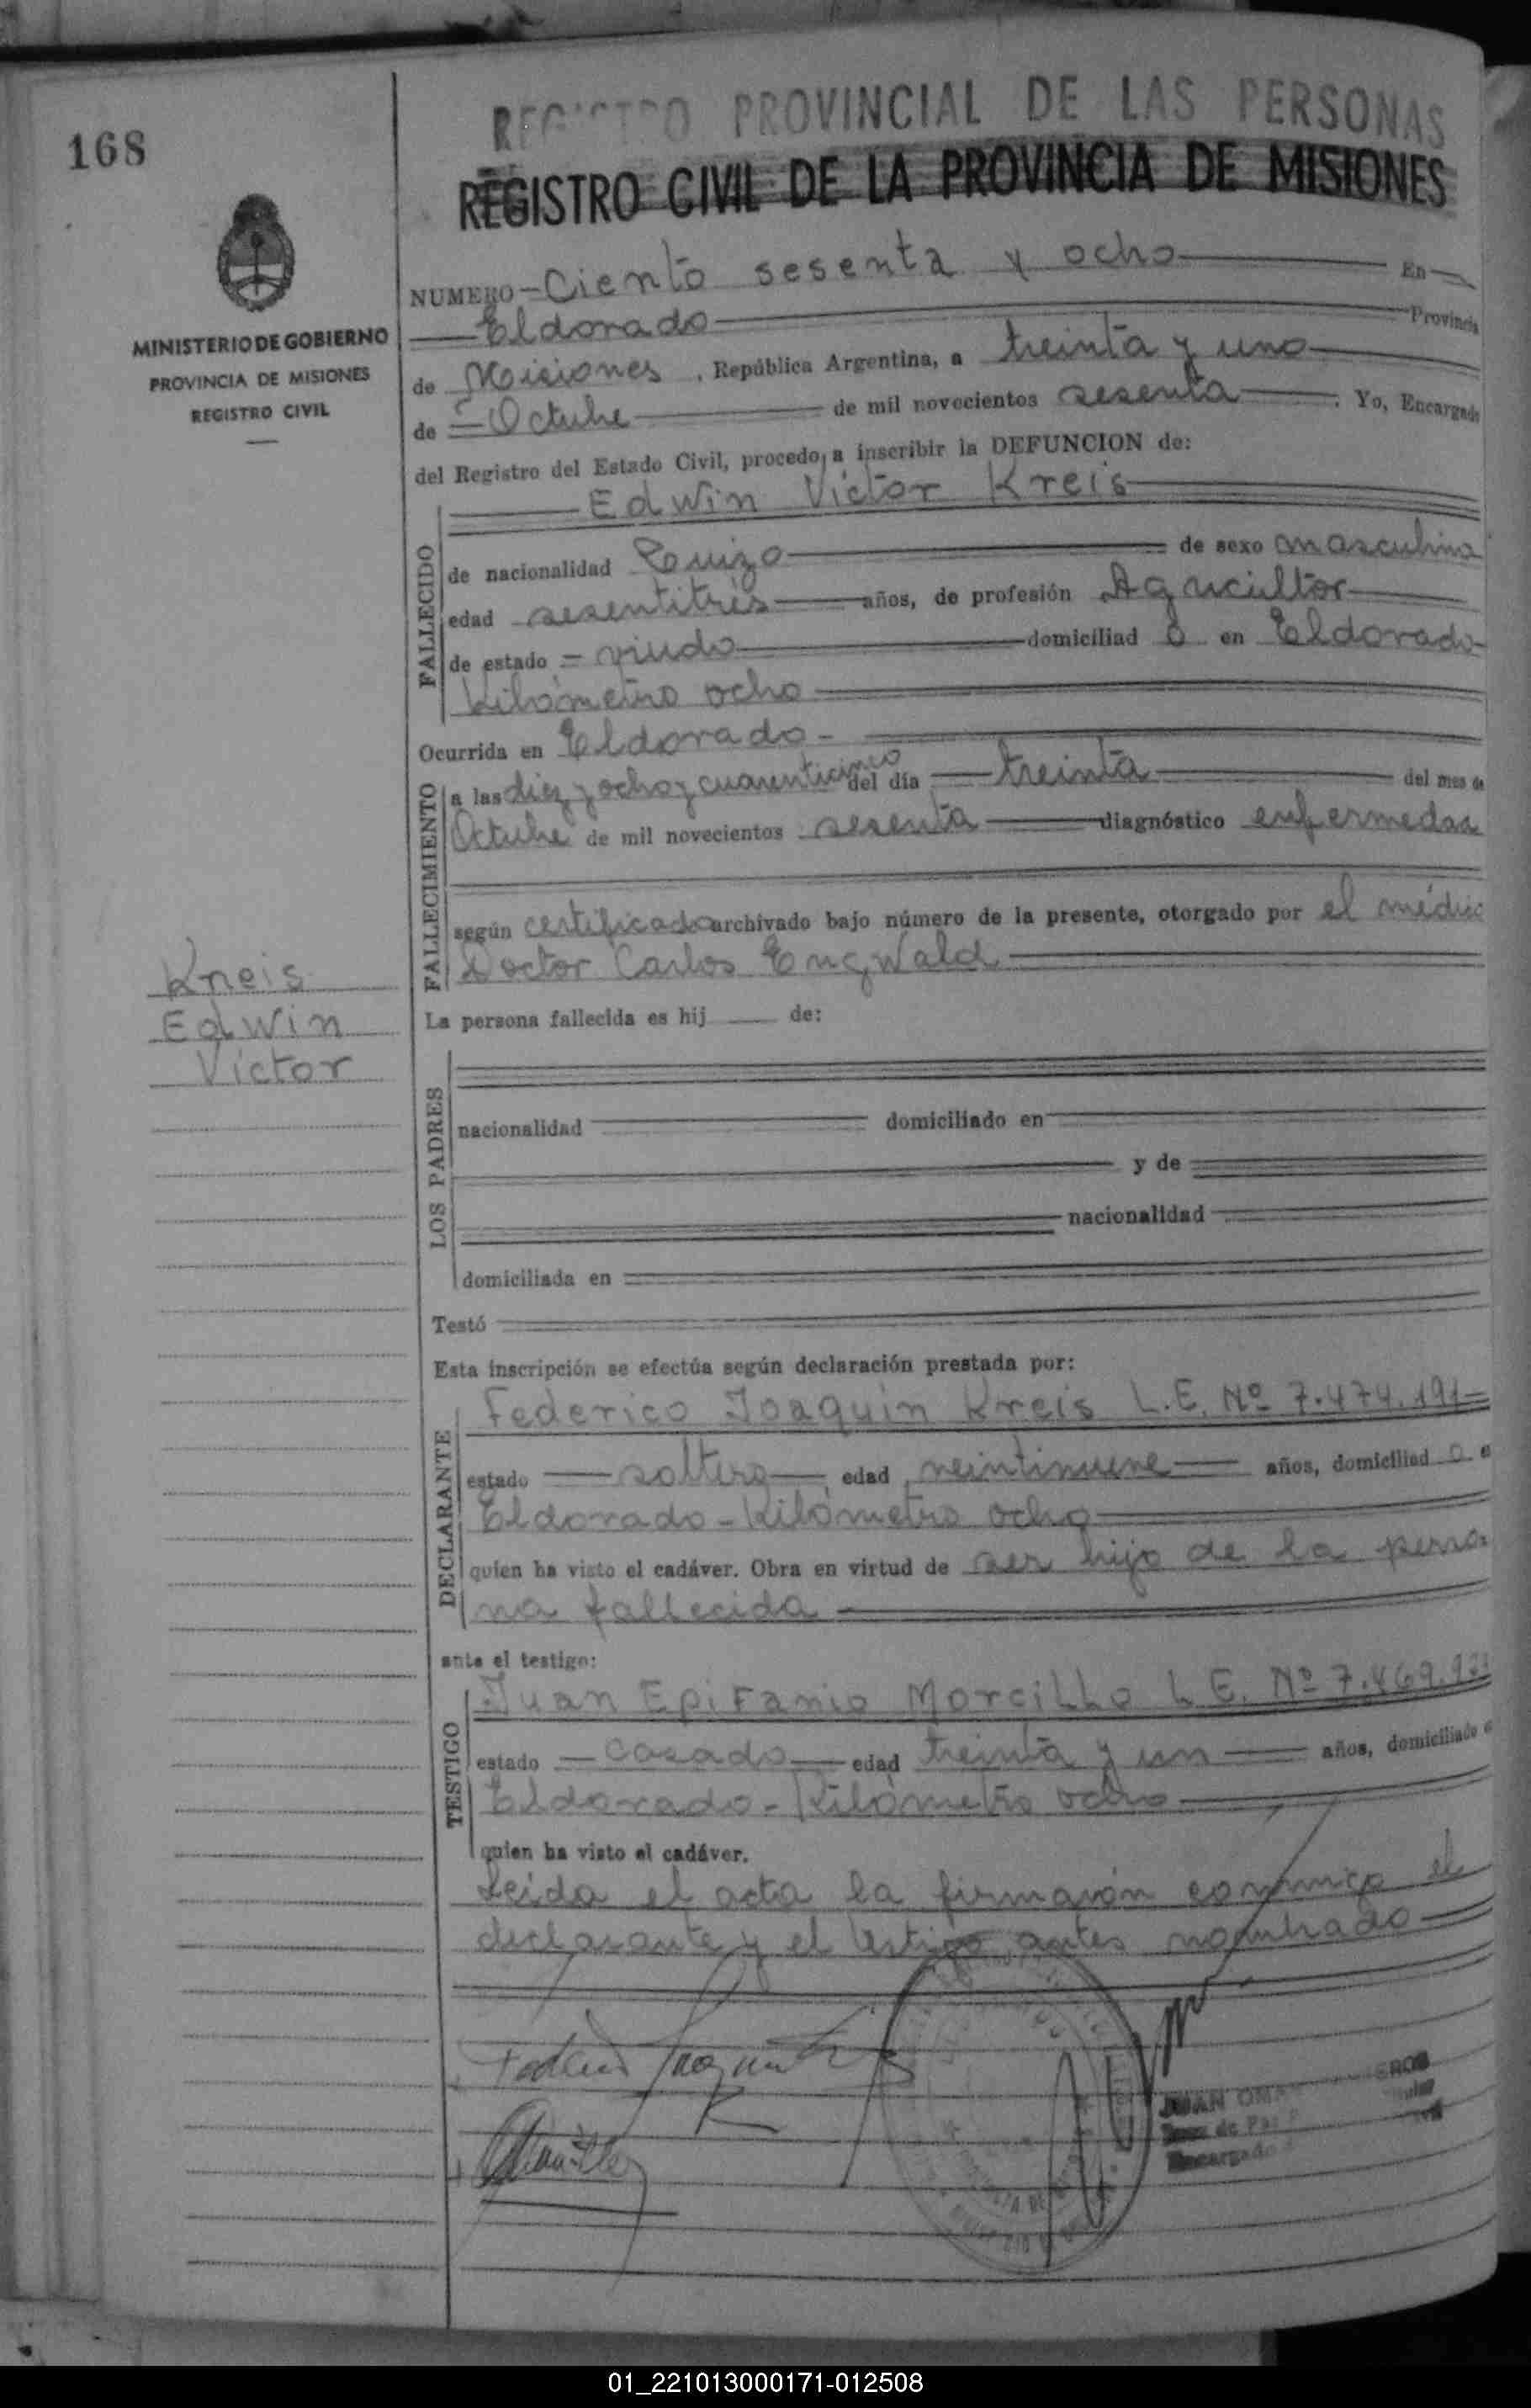 168
REGISTRO PROVINCIAL DE LAS PERSONAS
REGISTRO CIVIL DE LA PROVINCIA DE MISIONES
MINISTERIO DE GOBIERNO
PROVINCIA DE MISIONES
REGISTRO CIVIL
NUMERO Ciento sesenta y ocho En
Eldorado Provincia
de Misiones, República Argentina, a treinta y uno
de Octubre de mil novecientos sesenta. Yo, Encargado
del Registro del Estado Civil, procedo a inscribir la DEFUNCION de:
Edwin Victor Kreis
FALLECIDO
de nacionalidad Suizo de sexo masculino
edad sesentitrés años, de profesión Agricultor
de estado viudo domiciliad o en Eldorado
Kilómetro ocho
Ocurrida en Eldorado
FALLECIMIENTO
a las diez y ocho y cuarenticinco del día treinta del mes de
Octubre de mil novecientos sesenta diagnóstico enfermedad
según certificado archivado bajo número de la presente, otorgado por el médico
Doctor Carlos Engwald
Kreis
Edwin
Victor
La persona fallecida es hij de:
LOS PADRES
nacionalidad domiciliado en
y de
nacionalidad
domiciliada en
Testó
Esta inscripción se efectúa según declaración prestada por:
DECLARANTE
Federico Joaquín Kreis L.E. Nº 7.474.191
estado soltero edad veintinueve años, domiciliad o e
Eldorado - Kilómetro ocho
quien ha visto el cadáver. Obra en virtud de ser hijo de la perso
na fallecida
ante el testigo:
TESTIGO
Juan Epifanio Morcillo L.E. Nº 7.469.
estado casado edad treinta y un años, domiciliado e
Eldorado - Kilómetro ocho
quien ha visto el cadáver.
Leida el acta la firmarón conmigo el
declarante y el testigo antes nombrado
JUAN OMAR
Juez de Paz
Encargado
01_221013000171-012508